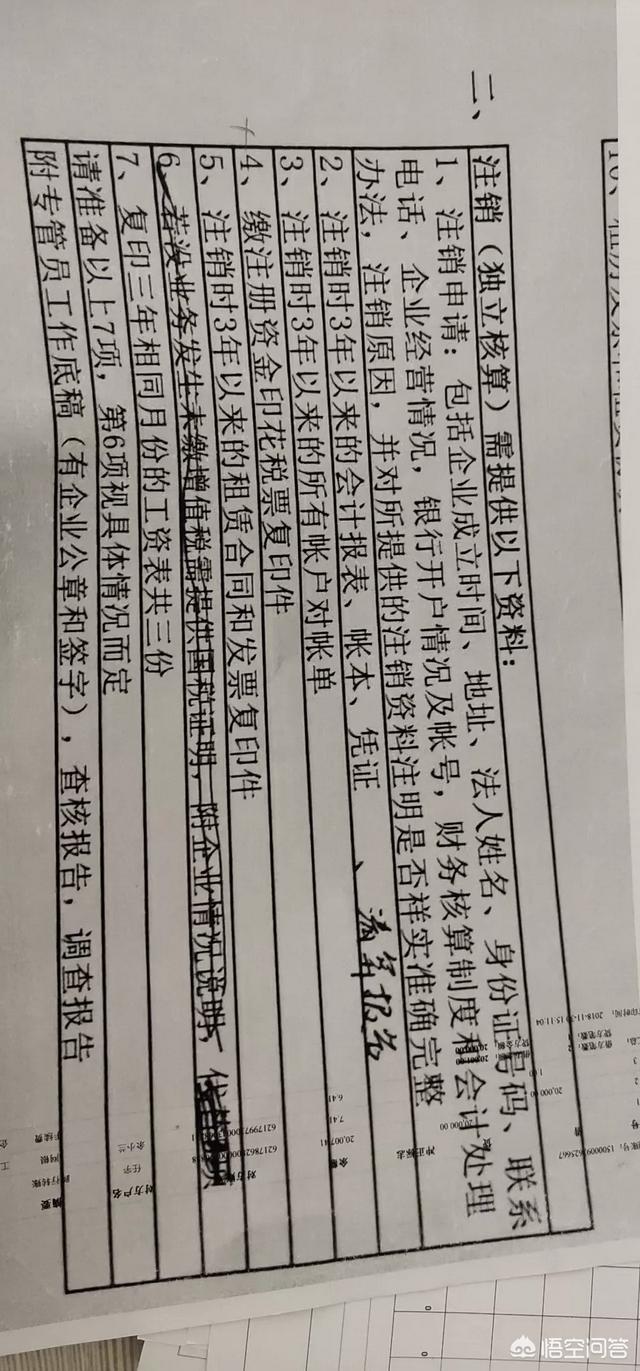 二、
注销（独立核算）需提供以下资料：
1、注销申请：包括企业成立时间、地址、法人姓名、身份证号码、联系
电话、企业经营情况，银行开户情况及帐号，财务核算制度和会计处理
办法，注销原因，并对所提供的注销资料注明是否祥实准确完整
2、注销时3年以来的会计报表、帐本、凭证 、清算报告
3、注销时3年以来的所有帐户对帐单
4、缴注册资金印花税票复印件
5、注销时3年以来的租赁合同和发票复印件
6、若没业务发生未缴增值税需提供国税证明，附企业情况说明，
7、复印三年相同月份的工资表共三份
请准备以上7项，第6项视具体情况而定
附专管员工作底稿（有企业公章和签字），查核报告，调查报告
2018-11-
15:11:04
20,000.00
冲正标志
余额
20,007.41
7.41
6.41
对方户名
任宇
余小兰
摘要
悟空问答